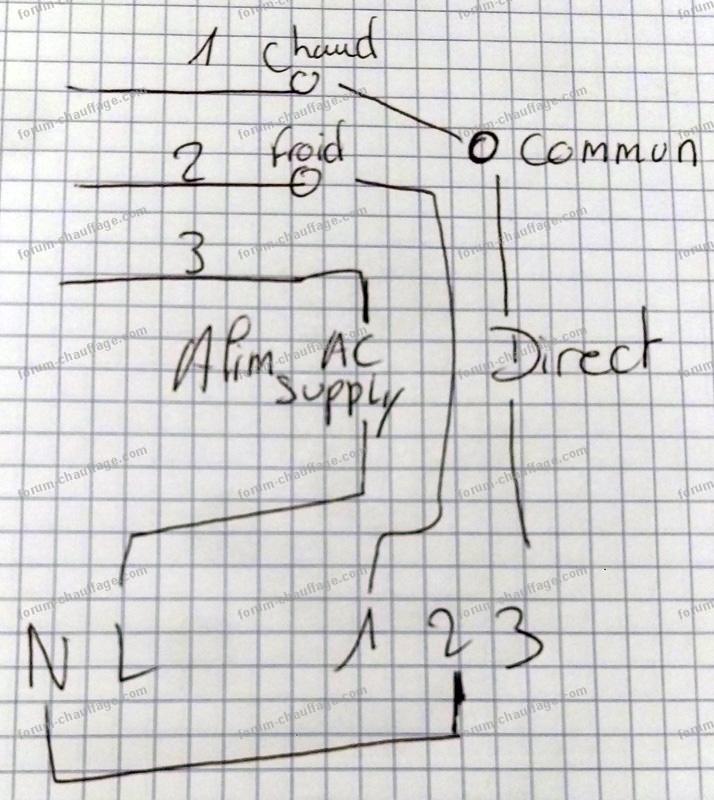 1 Chaud
commun
2 froid
3
Alim AC
supply
Direct
N L 1 2 3
forum-chauffage.com